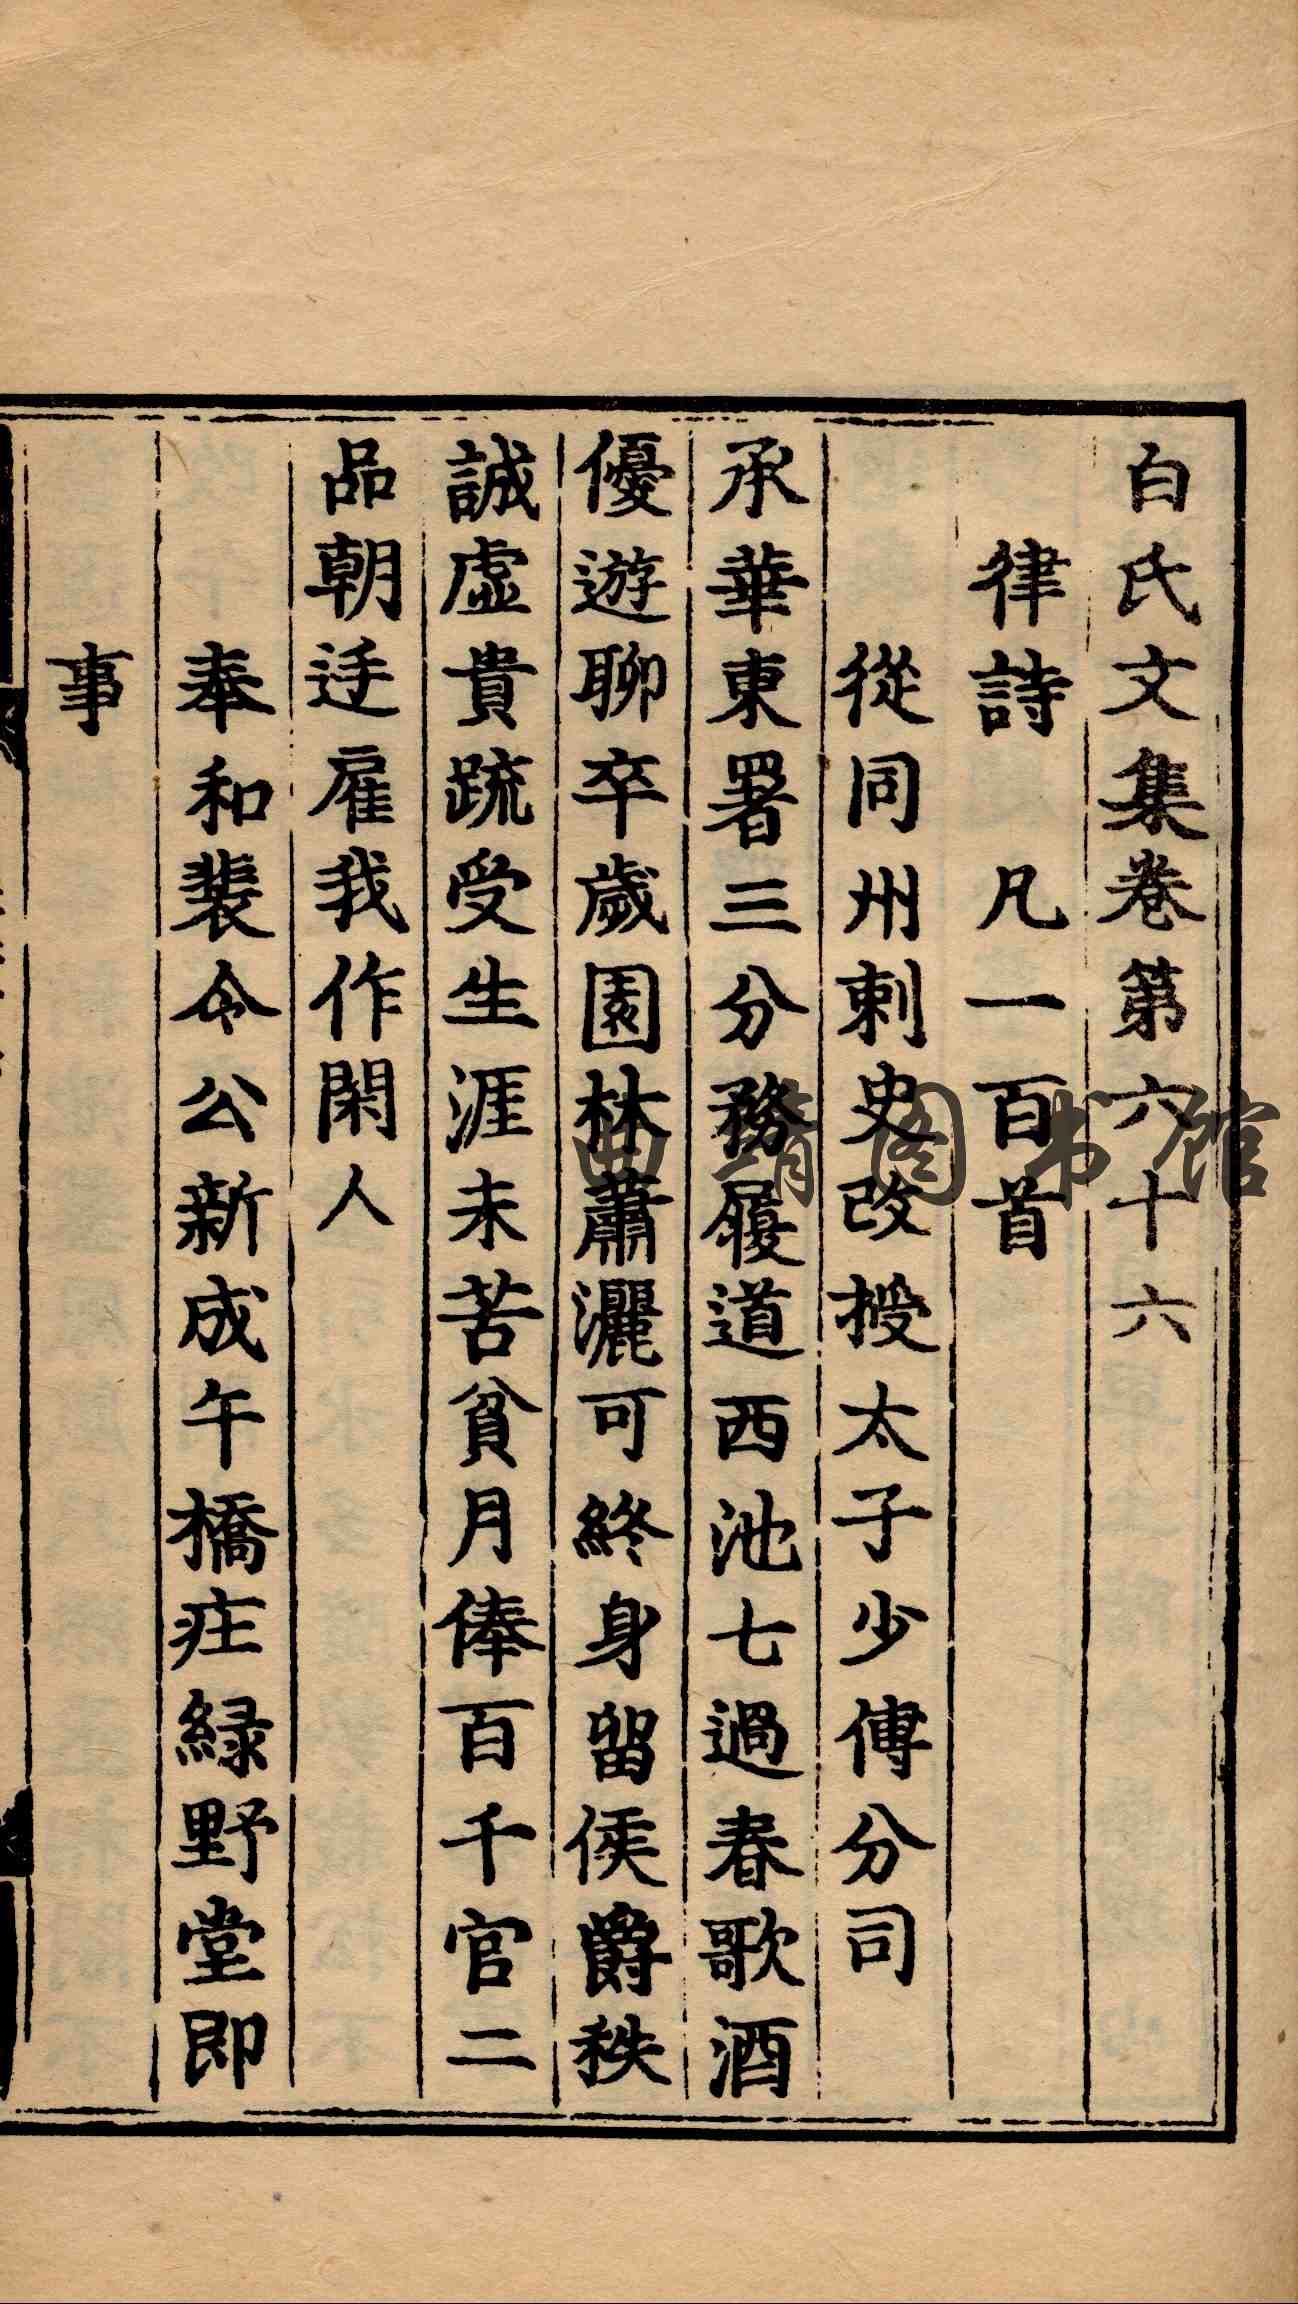 白氏文集卷第六十六
律詩　凡一百首
從同州刺史改授太子少傅分司
承華東署三分務履道西池七過春歌酒
優遊聊卒歲園林蕭灑可終身留侯爵秩
誠虛貴疏受生涯未苦貧月俸百千官二
品朝廷雇我作閑人
奉和裴令公新成午橋庄緑野堂即
事
曲靖图书馆